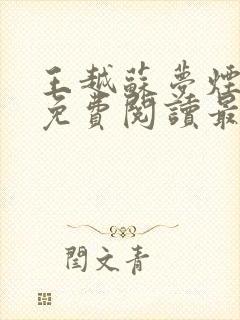 王越蘇夢煙
免費閱讀最
閆文青